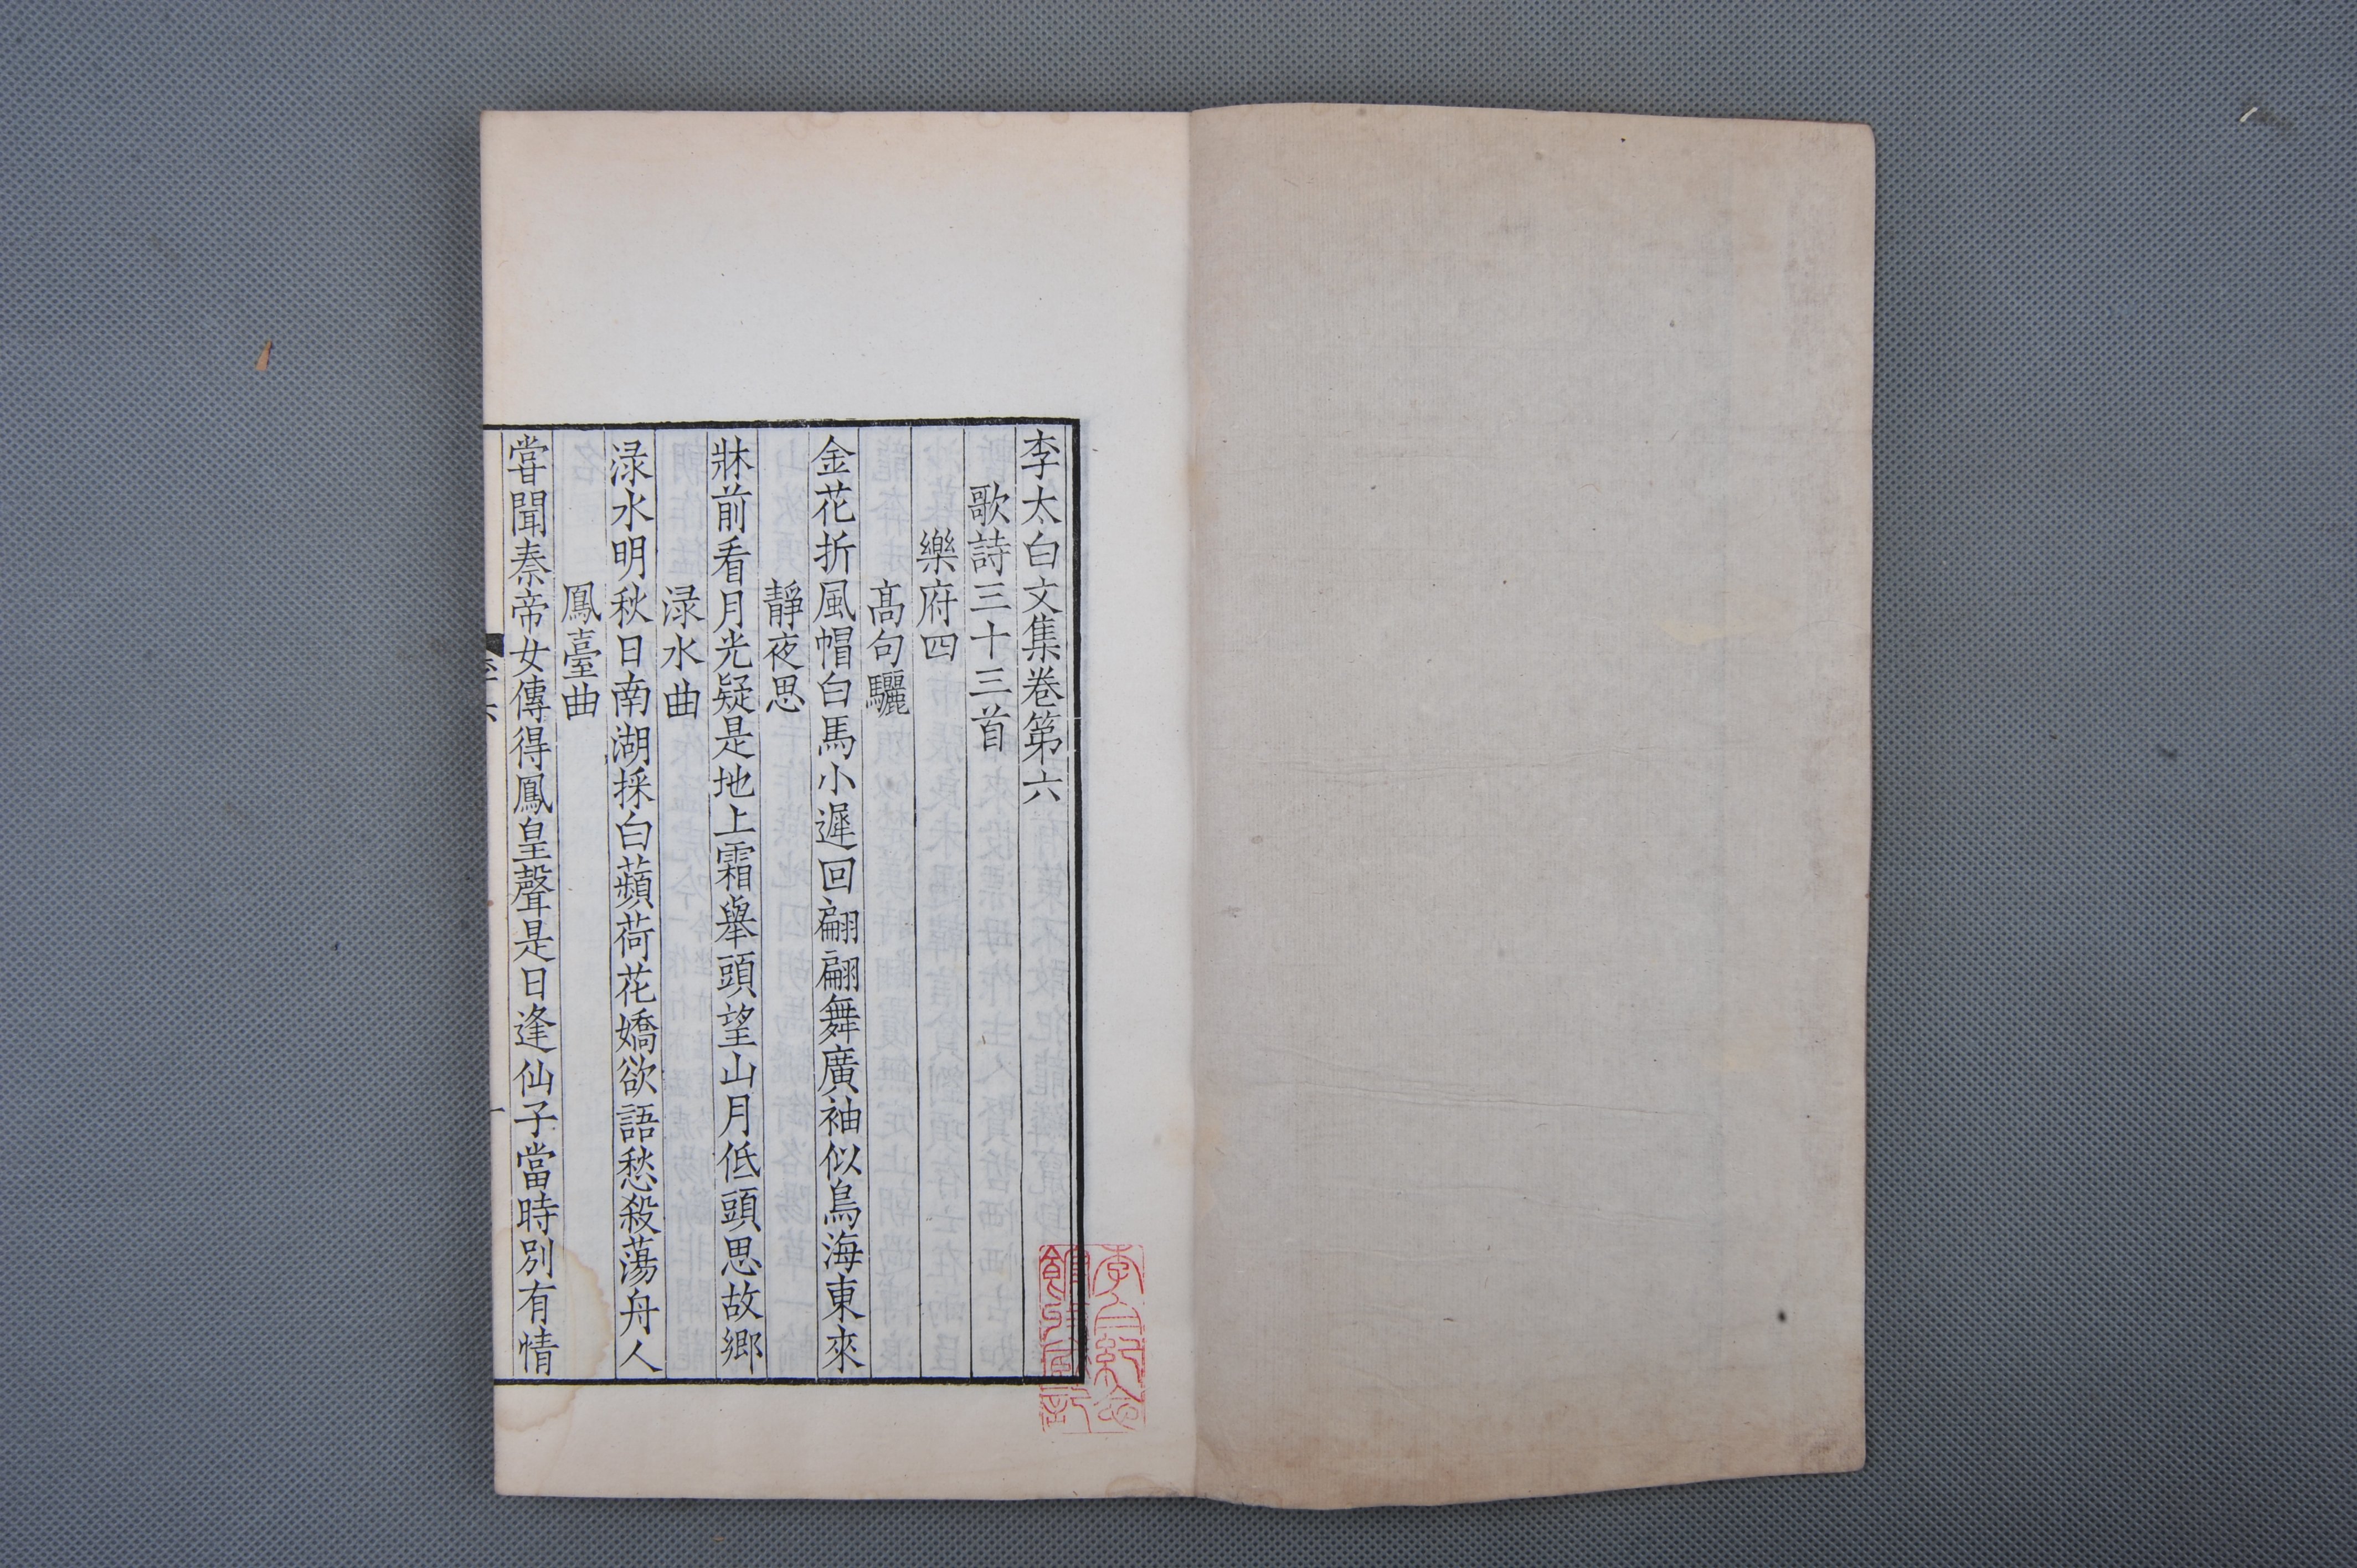 李太白文集卷第六
歌詩三十三首
樂府四
高句驪
金花折風帽白馬小遲回翩翩舞廣袖似鳥海東來
靜夜思
牀前看月光疑是地上霜舉頭望山月低頭思故鄉
淥水曲
淥水明秋日南湖採白蘋荷花嬌欲語愁殺蕩舟人
鳳臺曲
嘗聞秦帝女傳得鳳皇聲是日逢仙子當時別有情
李白紀念